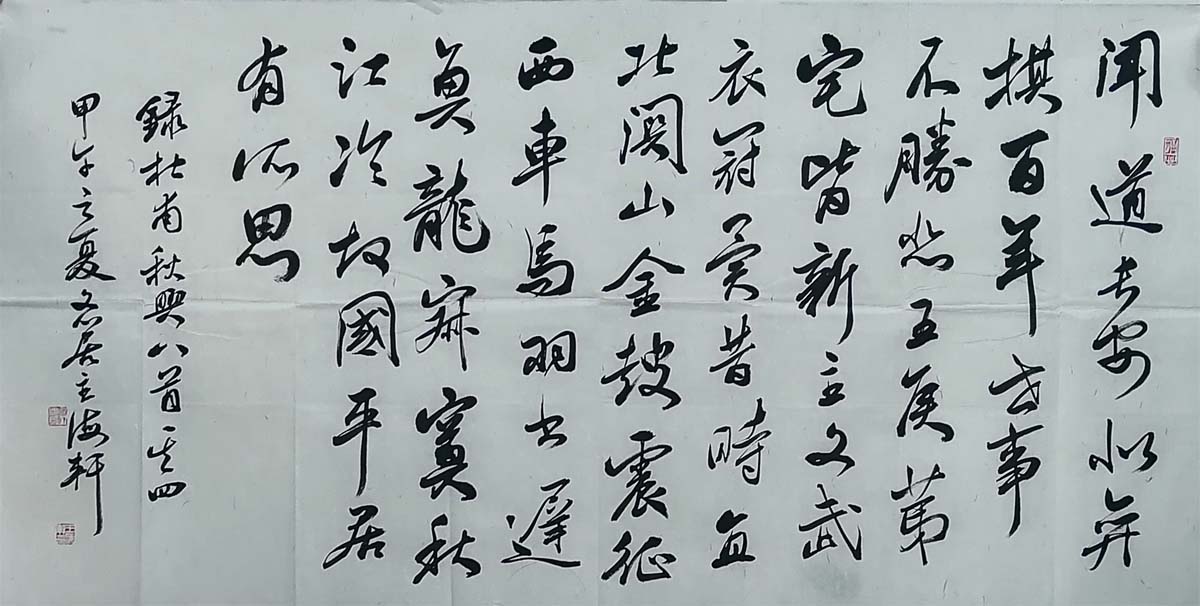 聞道長安似弈
棋百年世事
不勝悲王侯第
宅皆新主文武
衣冠異昔時直
北關山金鼓震征
西車馬羽書遲
魚龍寂寞秋
江冷故國平居
有所思
錄杜甫秋興八首其四
甲午之夏居主海軒